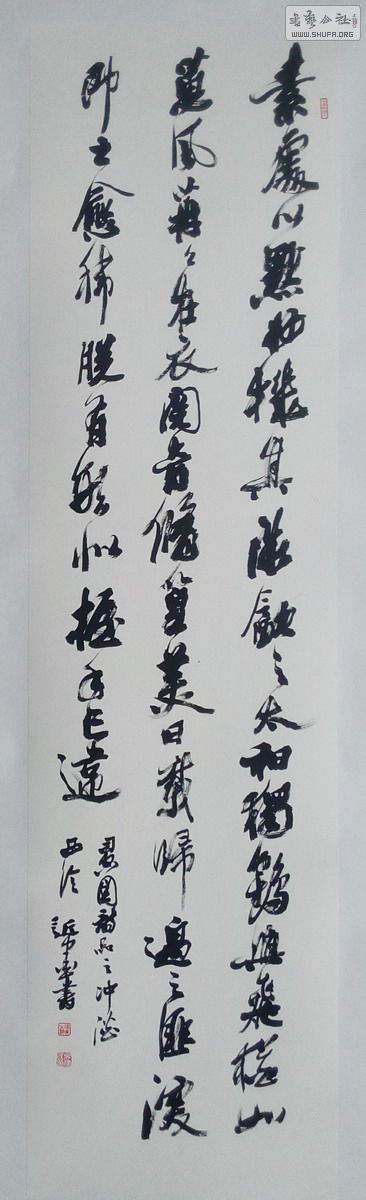 書藝公社
WWW.SHUFA.ORG
素處以默妙機其微飲之太和獨鶴與飛猶之
惠風荏苒在衣閱音修篁美曰載歸遇之匪深
即之愈稀脫有形似握手已違
圖詩品之冲澹
西泠書